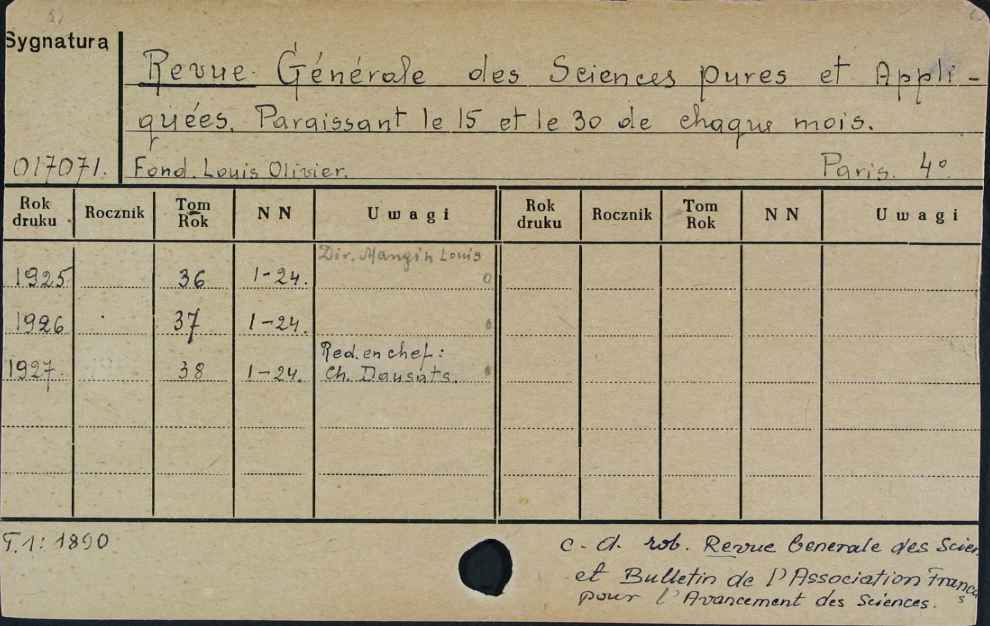 Sygnatura
Revue Générale des Sciences pures et Appli-
quées. Paraissant le 15 et le 30 de chaque mois.
017071. Fond. Louis Olivier. Paris. 4°
Rok druku Rocznik Tom Rok NN Uwagi Rok druku Rocznik Tom Rok NN Uwagi
Dir. Mangin Louis
1925 36 1-24.
1926 37 1-24.
Red. en chef:
1927 38 1-24. Ch. Dausats.
T.1: 1890
c. d. rob. Revue Generale des Scien
et Bulletin de l'Association Franç
pour l'Avancement des Sciences.